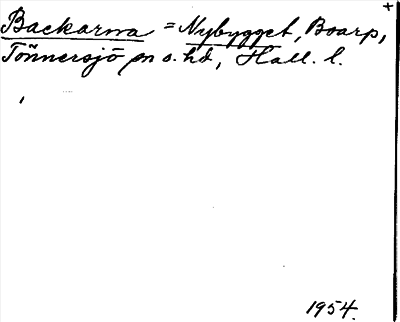 +
Backarna = Nybygget, Boarp,
Tönnersjö sn o. hd, Hall. l.
1954.